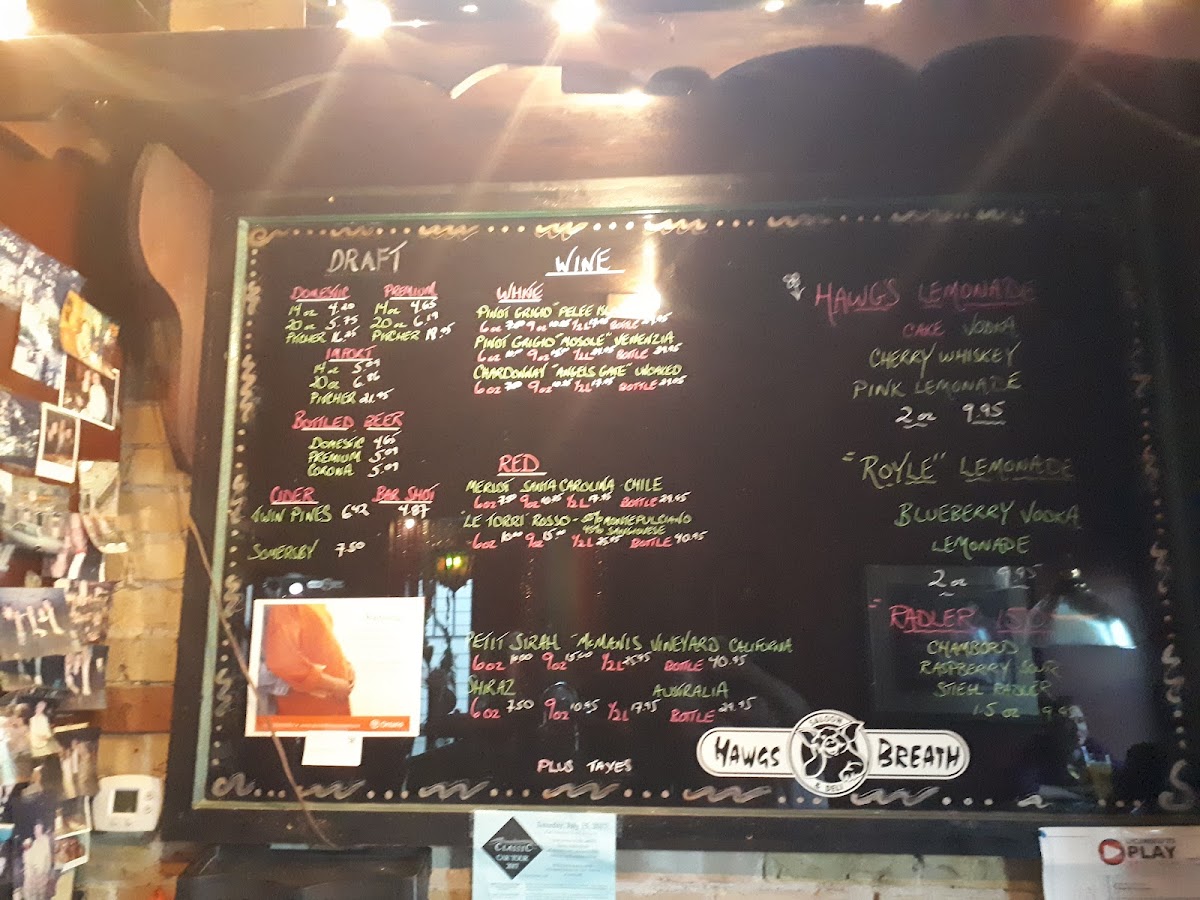 DRAFT
DOMESTIC
14 oz 4.20
20 oz 5.75
PITCHER
PREMIUM
14 oz 4.65
20 oz 6.19
PITCHER 18.95
IMPORT
14 oz 5.09
20 oz
PITCHER 21.95
BOTTLED BEER
DOMESTIC 4.65
PREMIUM 5.09
CORONA 5.09
CIDER
TWIN PINES 6.42
SOMERSBY 7.50
BAR SHOT
4.87
WINE
WHITE
PINOT GRIGIO "PELEE
6 oz 9 oz 1/2 L BOTTLE
PINOT GRIGIO "MOSOLE" VENENZIA
6 oz 9 oz 1/2 L BOTTLE
CHARDONNAY "ANGELS GATE" UNOAKED
6 oz 7.50 9 oz 10.95 1/2 L 17.95 BOTTLE 29.95
RED
MERLOT SANTA CAROLINA - CHILE
6 oz 7.50 9 oz 10.95 1/2 L 17.95 BOTTLE 29.95
"LE TORRI" ROSSO - MONTEPULCIANO
SANGIOVESE
6 oz 10.00 9 oz 15.00 1/2 L 25.95 BOTTLE 40.95
PETIT SIRAH "McMANIS VINEYARD CALIFORNIA
6 oz 10.00 9 oz 15.00 1/2 L 25.95 BOTTLE 40.95
SHIRAZ AUSTRALIA
6 oz 7.50 9 oz 10.95 1/2 L 17.95 BOTTLE 29.95
PLUS TAXES
HAWGS LEMONADE
CAKE VODKA
CHERRY WHISKEY
PINK LEMONADE
2 oz 9.95
"ROYLE" LEMONADE
BLUEBERRY VODKA
LEMONADE
2 oz 9.95
"RADLER 150"
CHAMBORD
RASPBERRY SOUR
STIEHL RADLER
1.5 oz
HAWGS BREATH
SALOON
& DELI
Ontario
Saturday, July 15, 2017
CLASSIC
CAR TOUR
2017
LICENSED TO
PLAY